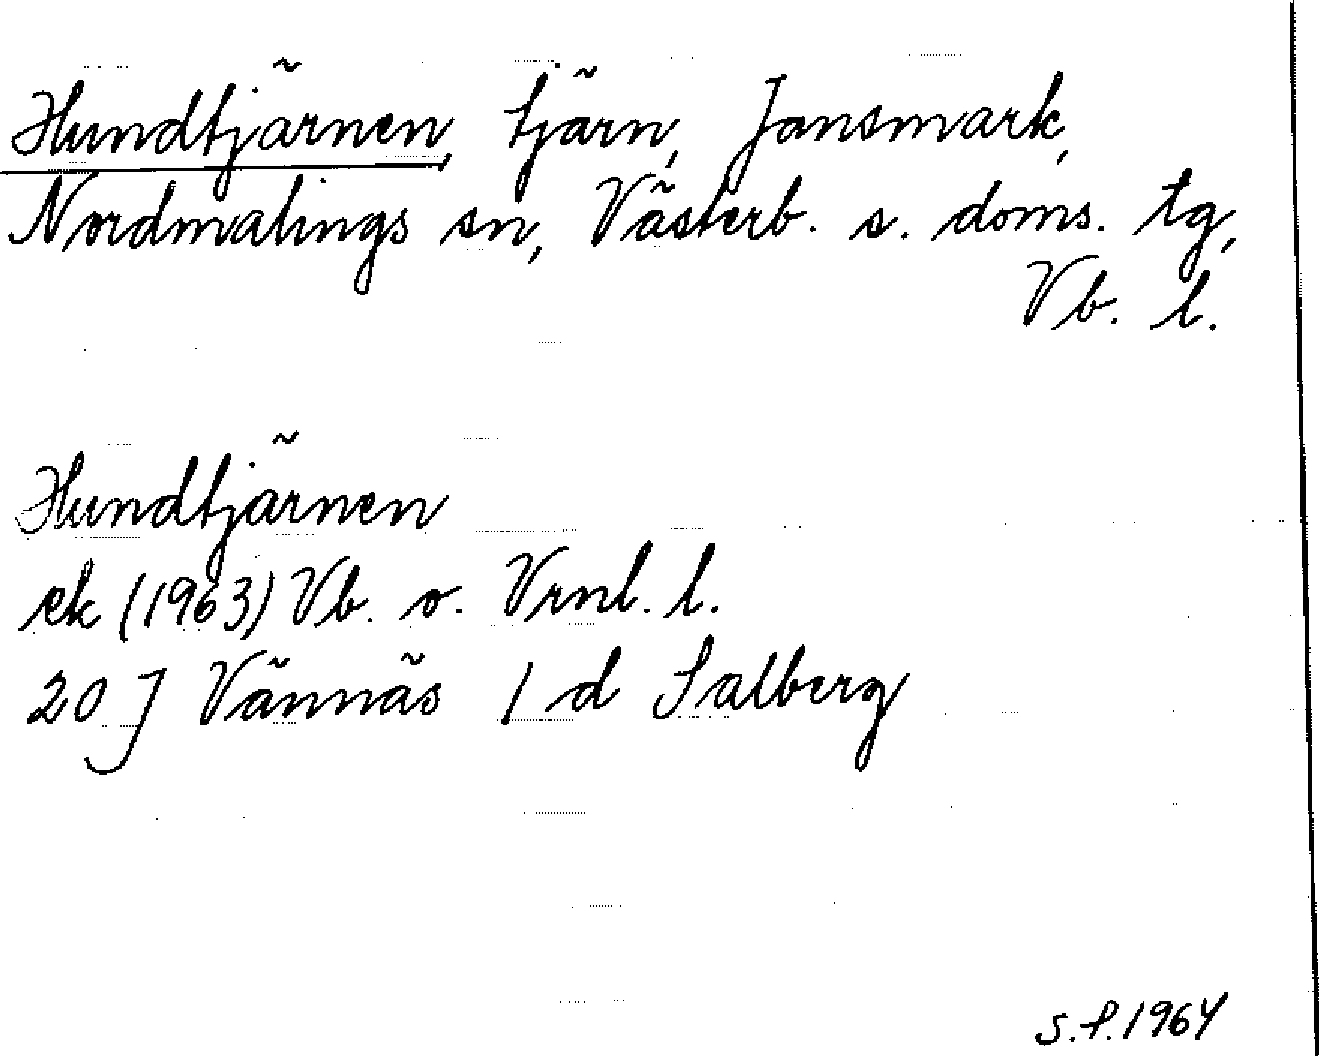 Hundtjärnen, tjärn, Jansmark,
Nordmalings sn, Västerb. s. doms. tg,
Vb. l.
Hundtjärnen
ek (1963) Vb. o. Vrnl. l.
20 J Vännäs 1 d Salberg
S.P. 1964